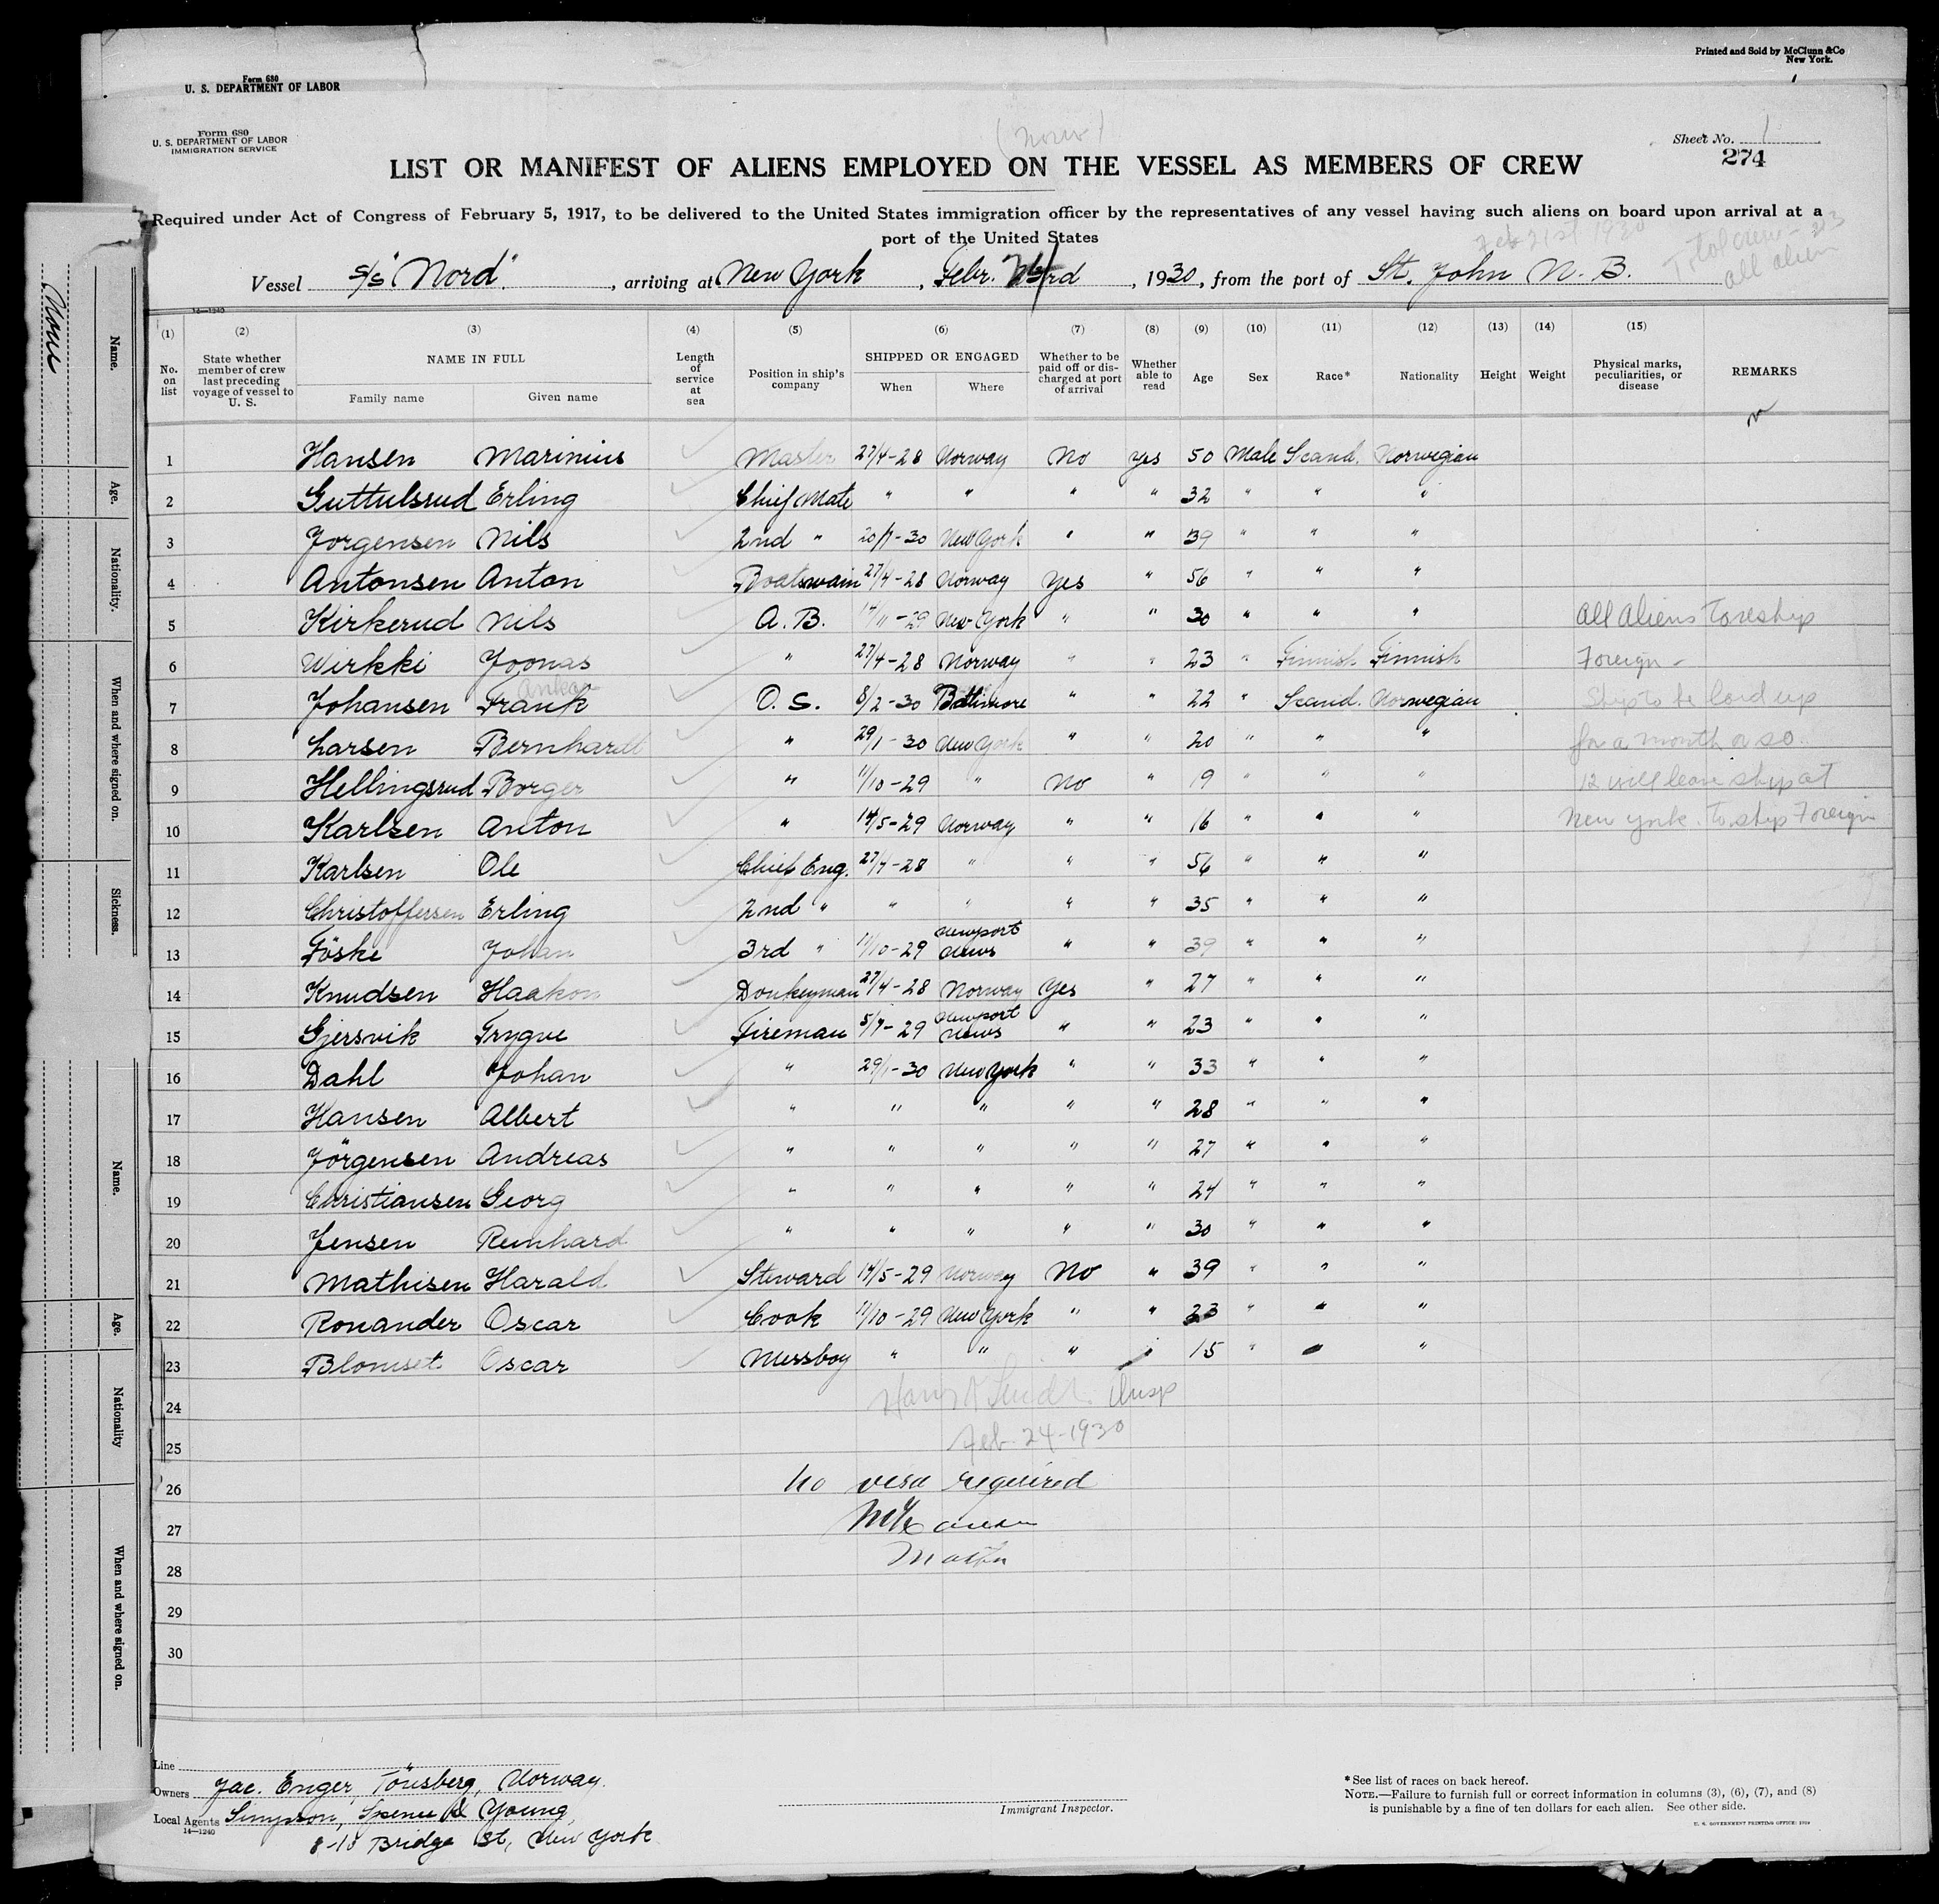 Printed and Sold by McClunn & Co
New York.
Form 680
U. S. DEPARTMENT OF LABOR
Form 680
U. S. DEPARTMENT OF LABOR
IMMIGRATION SERVICE
Sheet No. 1
274
LIST OR MANIFEST OF ALIENS EMPLOYED ON THE VESSEL AS MEMBERS OF CREW
Required under Act of Congress of February 5, 1917, to be delivered to the United States immigration officer by the representatives of any vessel having such aliens on board upon arrival at a
port of the United States
Feb 21st 1930
Total crew - 23
all alien
Vessel S/S "Nord", arriving at New York, Febr. 24rd, 1930, from the port of St. John N. B.
14—1240
(1) (2) (3) (4) (5) (6) (7) (8) (9) (10) (11) (12) (13) (14) (15)
No. on list
State whether member of crew last preceding voyage of vessel to U. S.
NAME IN FULL
Family name Given name
Length of service at sea
Position in ship's company
SHIPPED OR ENGAGED
When Where
Whether to be paid off or discharged at port of arrival
Whether able to read
Age Sex Race* Nationality Height Weight
Physical marks, peculiarities, or disease
REMARKS
1 Hansen Marinius Master 27/4-28 Norway No yes 50 Male Scand. Norwegian
2 Guttulsrud Erling Chief Mate " " " " 32 " " "
3 Jorgensen Nils 2nd " 20/1-30 New York " " 39 " " "
4 Antonsen Anton Boatswain 27/4-28 Norway Yes " 56 " " "
5 Kirkerud Nils A. B. 14/11-29 New York " " 30 " " " All aliens to reship
6 Wirkki Joonas " 27/4-28 Norway " " 23 " Finnish Finnish Foreign -
7 Johansen Frank O. S. 8/2-30 Baltimore " " 22 " Scand. Norwegian Ship to be laid up
8 Larsen Bernhardt " 29/1-30 New York " " 20 " " " for a month or so.
9 Hellingsrud Borger " 11/10-29 " No " 19 " " " 12 will leave ship at
10 Karlsen Anton " 14/5-29 Norway " " 16 " " " New York. To ship Foreign
11 Karlsen Ole Chief Eng. 27/4-28 " " " 56 " " "
12 Christoffersen Erling 2nd " " " " " 35 " " "
13 Föske Johan 3rd " 11/10-29 Newport News " " 39 " " "
14 Knudsen Haakon Donkeyman 27/4-28 Norway Yes " 27 " " "
15 Gjersvik Trygve Fireman 5/7-29 Newport News " " 23 " " "
16 Dahl Johan " 29/1-30 New York " " 33 " " "
17 Hansen Albert " " " " " 28 " " "
18 Jörgensen Andreas " " " " " 27 " " "
19 Christiansen Georg " " " " " 24 " " "
20 Jensen Reinhard " " " " " 30 " " "
21 Mathisen Harald Steward 14/5-29 Norway No " 39 " " "
22 Ronander Oscar Cook 11/10-29 New York " " 23 " " "
23 Blomset Oscar Messboy " " " " 15 " " "
24 Insp
25 Feb-24-1930
26 no visa required
27
28 Master
29
30
Line
Owners Jac. Enger, Tönsberg, Norway.
Local Agents Simpson, Spence & Young
14—1240
8-10 Bridge St, New York
Immigrant Inspector.
*See list of races on back hereof.
NOTE.—Failure to furnish full or correct information in columns (3), (6), (7), and (8)
is punishable by a fine of ten dollars for each alien. See other side.
U. S. GOVERNMENT PRINTING OFFICE: 1929
None
Name.
Age.
Nationality.
When and where signed on.
Sickness.
Name.
Age.
Nationality
When and where signed on.